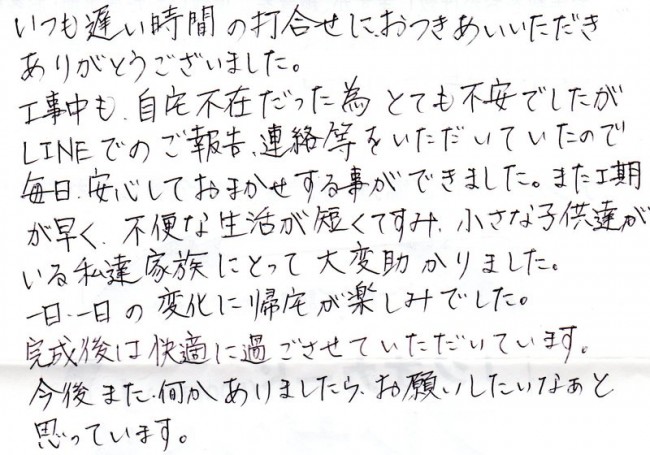 いつも遅い時間の打合せにおつきあいいただき
ありがとうございました。
工事中も、自宅不在だった為とても不安でしたが
LINEでのご報告、連絡等をいただいていたので
毎日、安心しておまかせする事ができました。また工期
が早く、不便な生活が短くてすみ、小さな子供達が
いる私達家族にとって大変助かりました。
一日、一日の変化に帰宅が楽しみでした。
完成後は快適に過ごさせていただいています。
今後また、何かありましたら、お願いしたいなぁと
思っています。